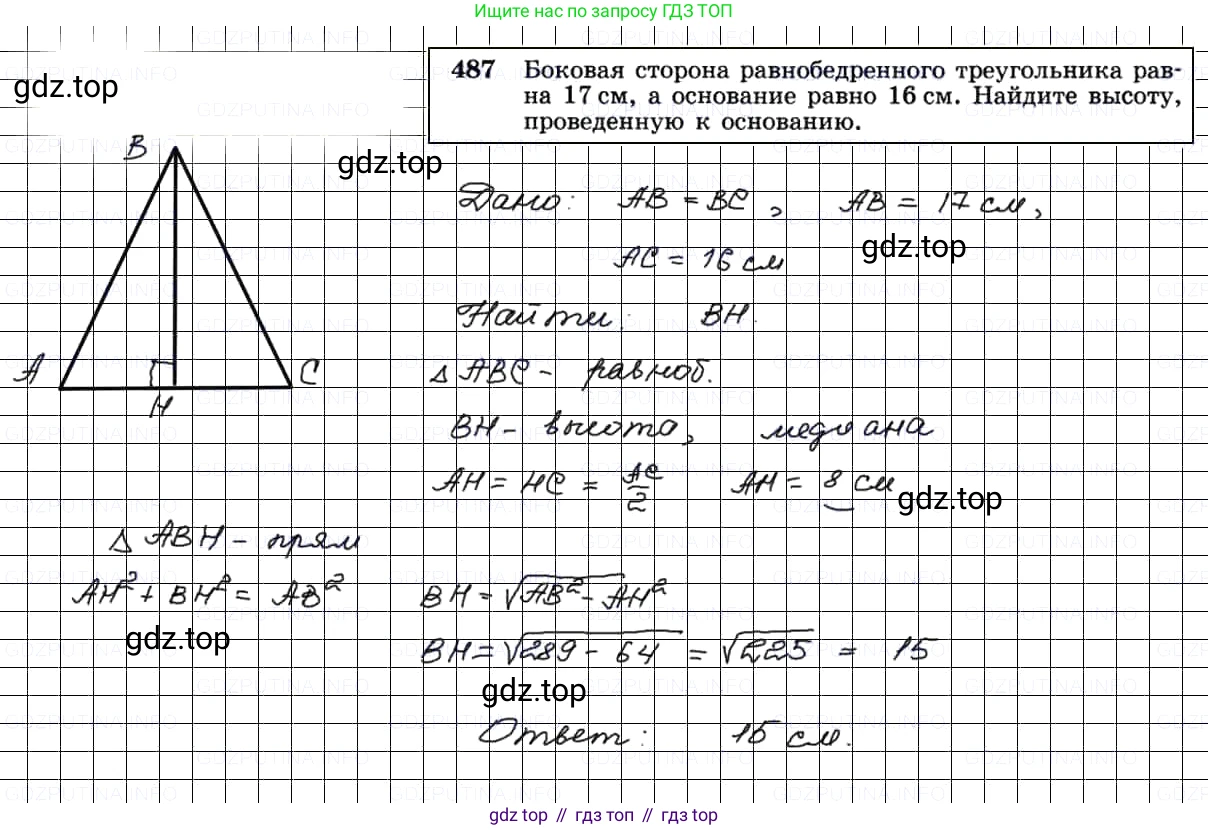 Ищите нас по запросу ГДЗ ТОП
487 Боковая сторона равнобедренного треугольника рав-
на 17 см, а основание равно 16 см. Найдите высоту,
проведенную к основанию.
gdz.top
B
gdz.top
Дано: AB = BC, AB = 17 см,
gdz.top
AC = 16 см
Найти: BH.
A
C
H
△ ABC - равноб.
BH - высота, медиана
AH = HC = AC/2 AH = 8 см
gdz.top
△ ABH - прям
AH² + BH² = AB² BH = √AB² - AH²
gdz.top
BH = √289 - 64 = √225 = 15
gdz.top
Ответ: 15 см.
gdz top // гдз топ // гдз top
GDZPUTINA.INFO